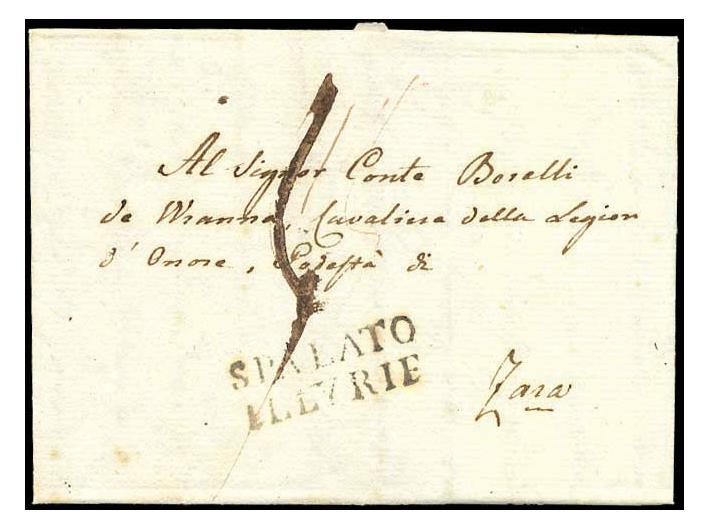 Al Signor Conte Borelli
de Wranna, Cavaliere della Legion
d'Onore, Podestà di
Zara
SPALATO
ILLYRIE